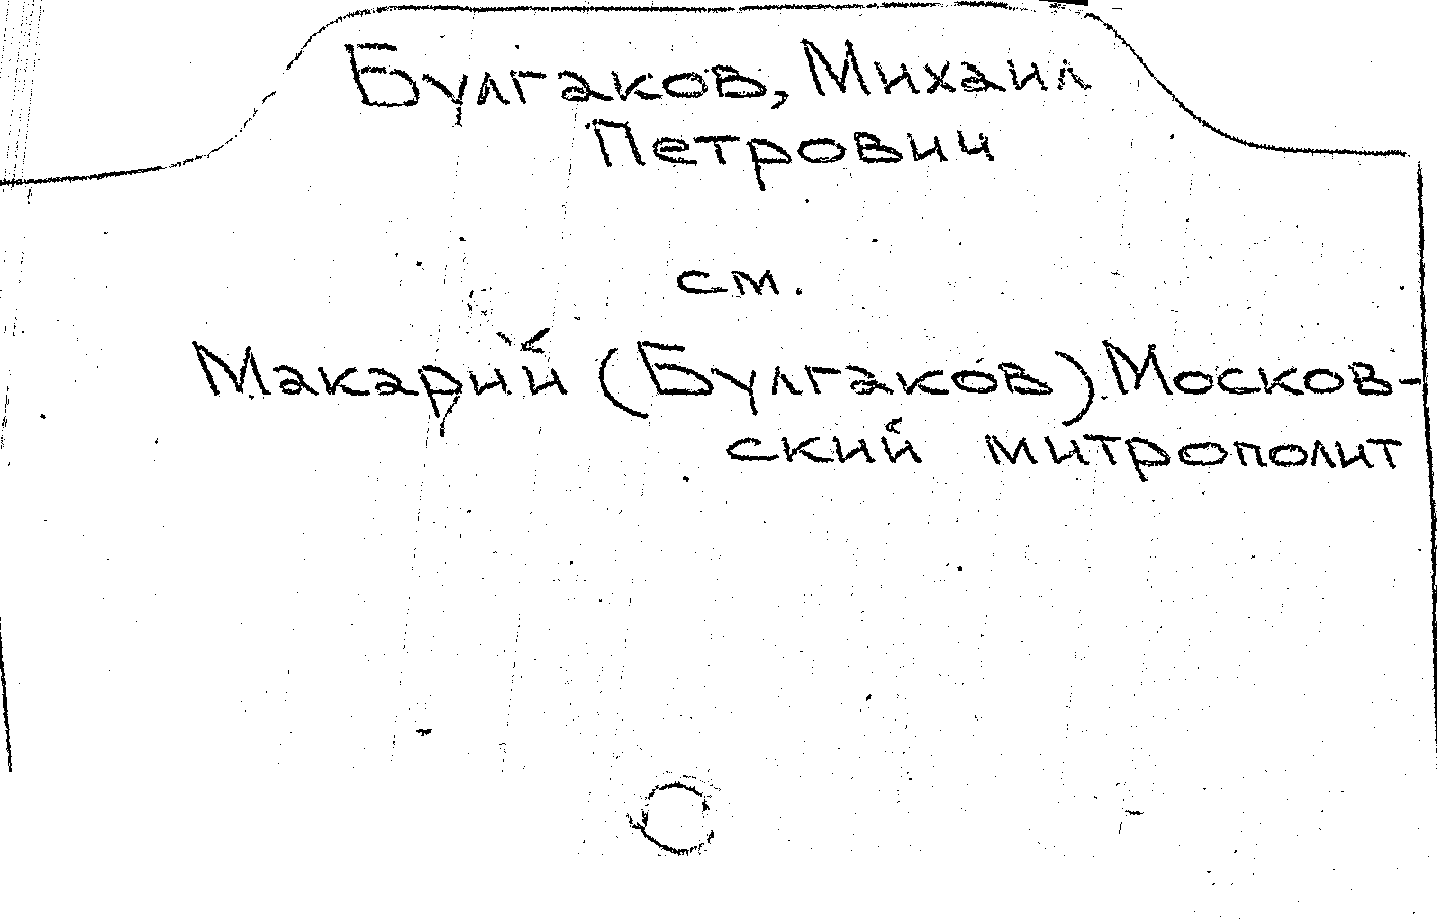 Булгаков, Михаил
Петрович
см.
Макарий (Булгаков) Москов-
ский митрополит